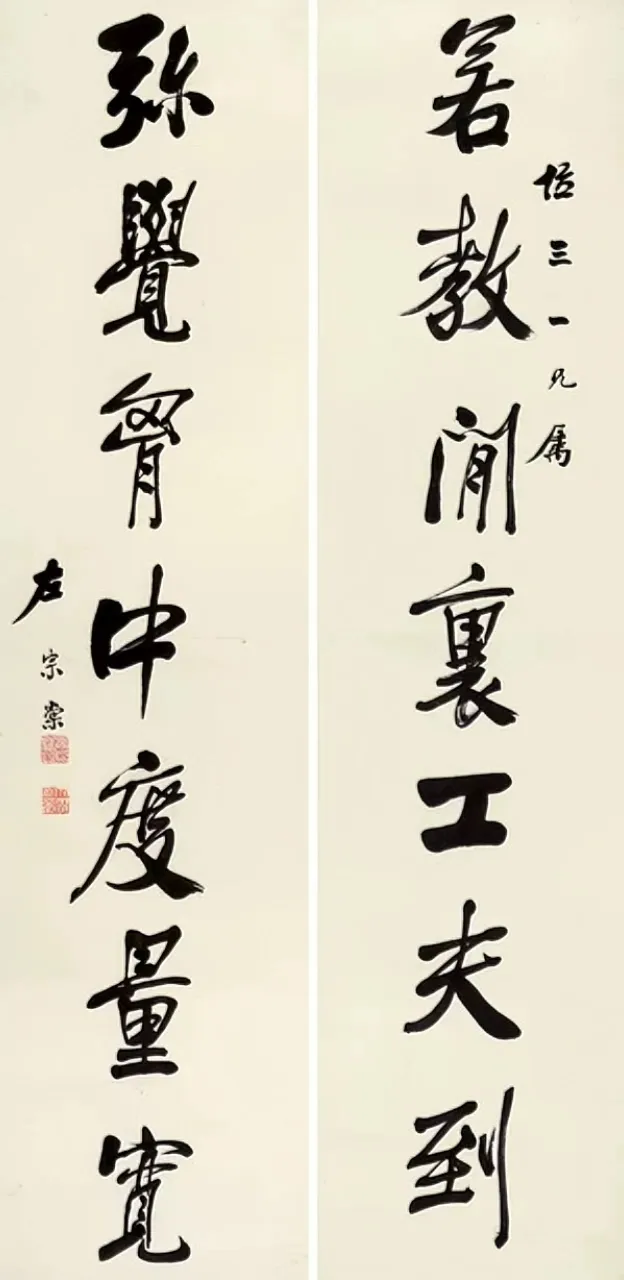 若教閒裏工夫到
培三一兄属
弥覺胷中度量寬
左宗棠